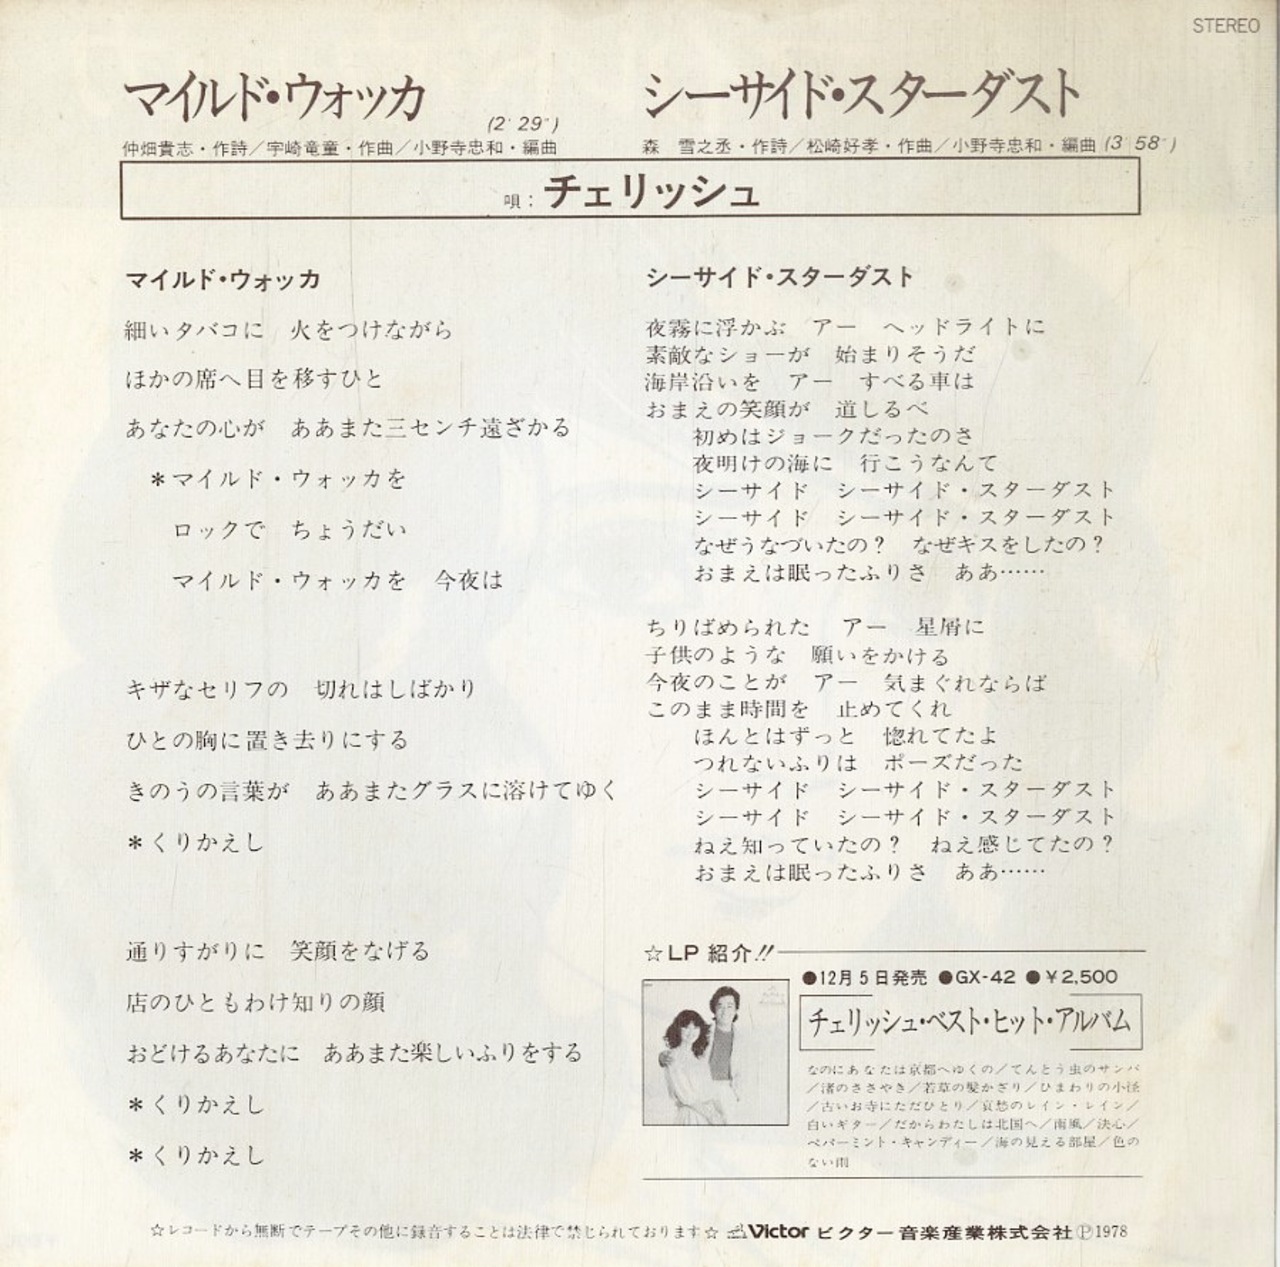 STEREO
マイルド・ウォッカ
(2′29″)
仲畑貴志・作詩／宇崎竜童・作曲／小野寺忠和・編曲
シーサイド・スターダスト
森　雪之丞・作詩／松崎好孝・作曲／小野寺忠和・編曲 (3′58″)
唄：チェリッシュ
マイルド・ウォッカ
細いタバコに　火をつけながら
ほかの席へ目を移すひと
あなたの心が　ああまた三センチ遠ざかる
＊マイルド・ウォッカを
ロックで　ちょうだい
マイルド・ウォッカを　今夜は
キザなセリフの　切れはしばかり
ひとの胸に置き去りにする
きのうの言葉が　ああまたグラスに溶けてゆく
＊くりかえし
通りすがりに　笑顔をなげる
店のひともわけ知りの顔
おどけるあなたに　ああまた楽しいふりをする
＊くりかえし
＊くりかえし
シーサイド・スターダスト
夜霧に浮かぶ　アー　ヘッドライトに
素敵なショーが　始まりそうだ
海岸沿いを　アー　すべる車は
おまえの笑顔が　道しるべ
初めはジョークだったのさ
夜明けの海に　行こうなんて
シーサイド　シーサイド・スターダスト
シーサイド　シーサイド・スターダスト
なぜうなづいたの？　なぜキスをしたの？
おまえは眠ったふりさ　ああ……
ちりばめられた　アー　星屑に
子供のような　願いをかける
今夜のことが　アー　気まぐれならば
このまま時間を　止めてくれ
ほんとはずっと　惚れてたよ
つれないふりは　ポーズだった
シーサイド　シーサイド・スターダスト
シーサイド　シーサイド・スターダスト
ねえ知っていたの？　ねえ感じてたの？
おまえは眠ったふりさ　ああ……
☆LP 紹介!!
●12月5日発売 ●GX-42 ●￥2,500
チェリッシュ・ベスト・ヒット・アルバム
なのにあなたは京都へゆくの／てんとう虫のサンバ
／渚のささやき／若草の髪かざり／ひまわりの小径
／古いお寺にただひとり／哀愁のレイン・レイン／
白いギター／だからわたしは北国へ／南風／決心／
ペパーミント・キャンディー／海の見える部屋／色の
ない雨
☆レコードから無断でテープその他に録音することは法律で禁じられております☆ Victor ビクター音楽産業株式会社Ⓟ1978